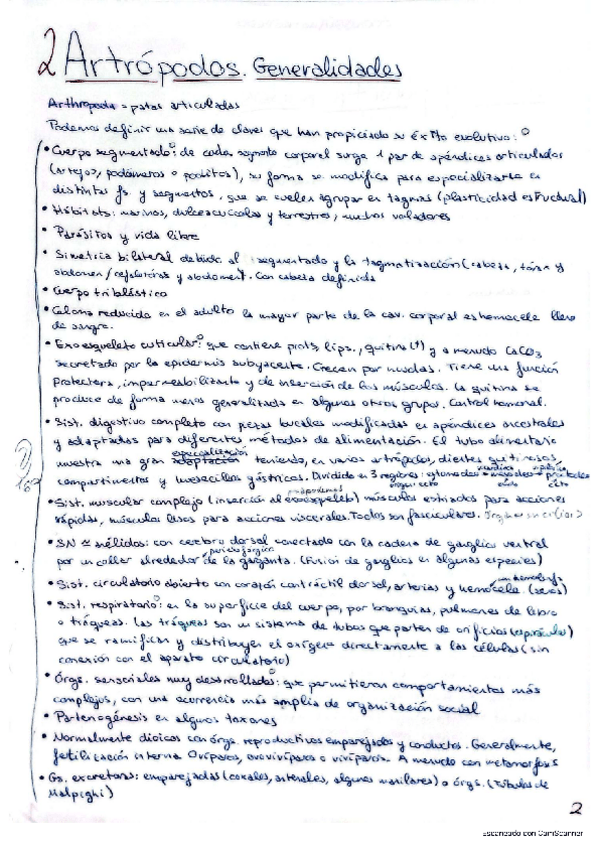 2 Artrópodos. Generalidades
Arthropoda = patas articuladas
Podemos definir una serie de claves que han propiciado su éxito evolutivo:
• Cuerpo segmentado: de cada segmento corporal surge 1 par de apéndices articulados
(artejos, podómeros o poditos), su forma se modifica para especializarse en
distintas fs. y segmentos, que se suelen agrupar en tagmas (plasticidad estructural)
• Hábitats: marinos, dulceacuícolas y terrestres, muchos voladores
• Parásitos y vida libre
• Simetría bilateral debido al segmentado y la tagmatización (cabeza, tórax y
abdomen / cefalotórax y abdomen). Con cabeza definida
• Cuerpo triblástico
• Celoma reducido en el adulto la mayor parte de la cav. corporal es hemocele lleno
de sangre.
• Exoesqueleto cuticular: que contiene prots, lips., quitina (↑) y a menudo CaCO3
secretado por la epidermis subyacente. Crecen por mudas. Tiene una función
protectora, impermeabilizante y de inserción de los músculos. La quitina se
produce de forma menos generalizada en algunos otros grupos. Control hormonal.
• Sist. digestivo completo con piezas bucales modificadas en apéndices ancestrales
y adaptadas para diferentes métodos de alimentación. El tubo alimentario
especialización
muestra una gran adaptación teniendo, en varios artrópodos, dientes quitinosos,
compartimentos y molinillos gástricos. Dividido en 3 regiones:
• Sist. muscular complejo (inserción al exoesqueleto) músculos estriados para acciones
rápidas, músculos lisos para acciones viscerales. Todos son fasciculares.
• SN ≈ anélidos: con cerebro dorsal conectado con la cadena de ganglios ventral
por un collar alrededor de la garganta. (Fusión de ganglios en algunas especies)
• Sist. circulatorio abierto con corazón contráctil dorsal, arterias y hemocele (senos)
• Sist. respiratorio: en la superficie del cuerpo, por branquias, pulmones de libro
o tráqueas. Las tráqueas son un sistema de tubos que parten de orificios (espiráculos)
que se ramifican y distribuyen el oxígeno directamente a las células (sin
conexión con el aparato circulatorio)
• Órgs. sensoriales muy desarrollados: que permitieron comportamientos más
complejos, con una ocurrencia más amplia de organización social
• Partenogénesis en algunos taxones
• Normalmente dioicos con órgs. reproductivos emparejados y conductos. Generalmente,
fertilización interna. Ovíparos, ovovivíparos o vivíparos. A menudo con metamorfosis
• Gs. excretoras: emparejadas (coxales, antenales, algunas maxilares) o órgs. (Túbulos de
Malpighi)
2
Escaneado con CamScanner